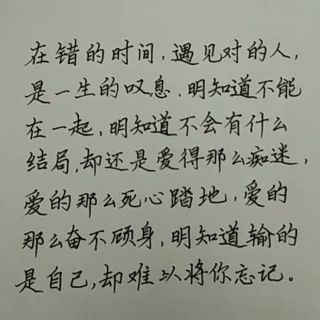 在错的时间，遇见对的人，
是一生的叹息．明知道不能
在一起，明知道不会有什么
结局，却还是爱得那么痴迷，
爱的那么死心踏地，爱的
那么奋不顾身，明知道输的
是自己，却难以将你忘记。